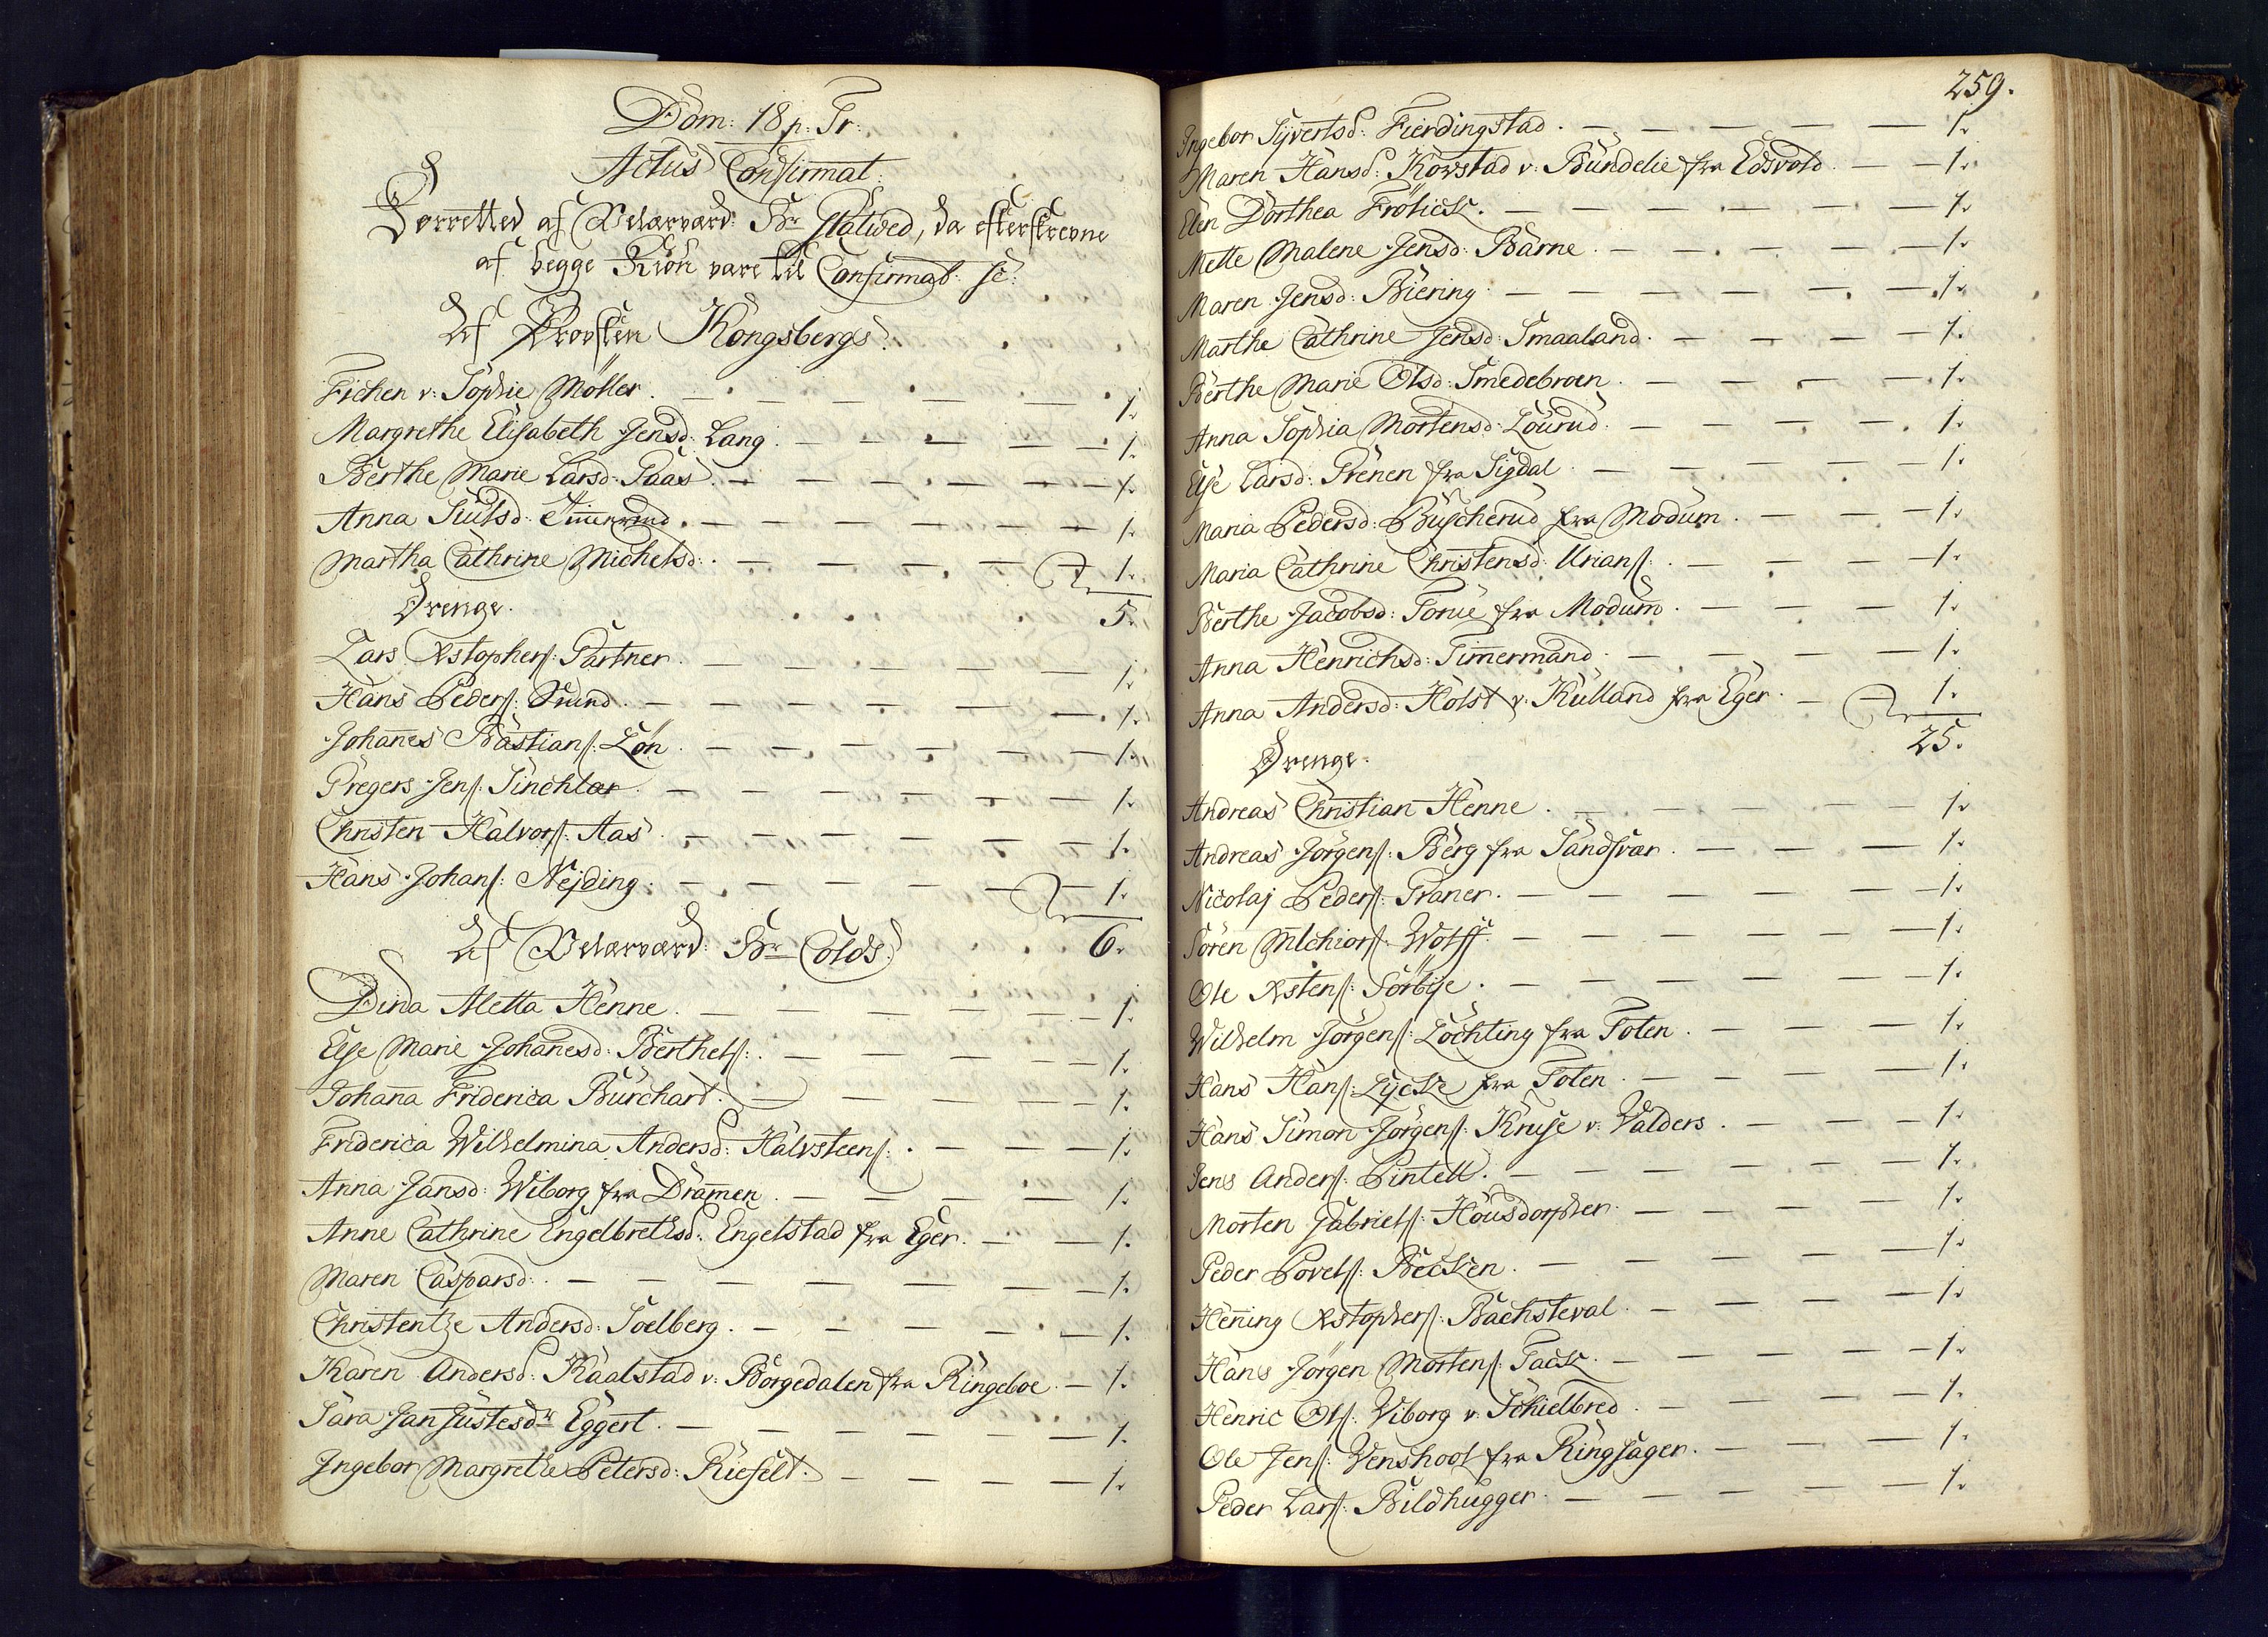 Dom: 18 p: Tr:
Actus Confirmat:
Forretted af Velærværd: Hr Flatved, da efterskrevne
af begge Kiøn vare til Confirmat: sc:
Af Provsten Kongsbergs.
Fichen v: Sophie Möller. 1.
Margrethe Elisabeth Jensd: Lang. 1.
Berthe Marie Larsd: Paas. 1.
Anna Siulsd: 1.
Martha Cathrine Michelsd: 1.
5.
Drenge.
Lars Xstophers: Gartner. 1.
Hans Peders: 1.
Johannes Bastians: Lön. 1.
Gregers Jens: Sinchlar. 1.
Christen Halvors: Aas. 1.
Hans Johans: Nejding. 1.
6.
Af Velærværd: Hr Colds.
Dina Aletta Henne. 1.
Else Marie Johanesd: Berthels: 1.
Johanna Friderica Burchart. 1.
Friderica Wilhelmina Andersd: Halvsteens: 1.
Anna Jansd: Wiborg fra Dramen. 1.
Anne Cathrine Engelbretsd: Engelstad fra Eger. 1.
Maren Caspersd: 1.
Christentze Andersd: Soelberg. 1.
Karen Andersd: Kaalstad v: Borgedalen fra Ringeboe. 1.
Sara Jan Justesdr Eggert. 1.
Ingebor Margrethe Petersd: Riefelt. 1.
259.
Ingebor Syvertsd: Fierdingstad. 1.
Maren Hansd: Korstad v: Bundelie fra Edsvold. 1.
Elen Dorthea Frölick. 1.
Mette Malene Jensd: Barne. 1.
Maren Jensd: Biering. 1.
Marthe Cathrine Jensd: Smaaland. 1.
Berthe Marie Olsd: Smedebroen. 1.
Anna Sophia Mortensd: Lourud. 1.
Else Larsd: Prenen fra Sigdal. 1.
Maria Pedersd: Buscherud fra Modum. 1.
Maria Cathrine Christensd: Urians: 1.
Berthe Jacobsd: Torue fra Modum. 1.
Anna Henrichsd: Timmermand. 1.
Anna Andersd: Holst v: Kulland fra Eger. 1.
25.
Drenge.
Andreas Christian Henne. 1.
Andreas Jörgens: Berg fra Sandsvær. 1.
Nicolaj Peders: Praner. 1.
Sören Mlchiors: Wolff. 1.
Ole Xstens: Sörbye. 1.
Wilhelm Jörgens: Löchting fra Toten. 1.
Hans Hans: Lycke fra Toten. 1.
Hans Simon Jörgens: Kruse v: Valders. 1.
Jens Anders: Pintell. 1.
Morten Gabriels: Housdorpher. 1.
Peder Povels: Becken. 1.
Hening Xstophers: Bachsteval. 1.
Hans Jörgen Mortens: Fack. 1.
Henric Ols: Viborg v: Schielbred. 1.
Ole Jens: Venshoel fra Ringsager. 1.
Peder Lars: Bildhugger. 1.